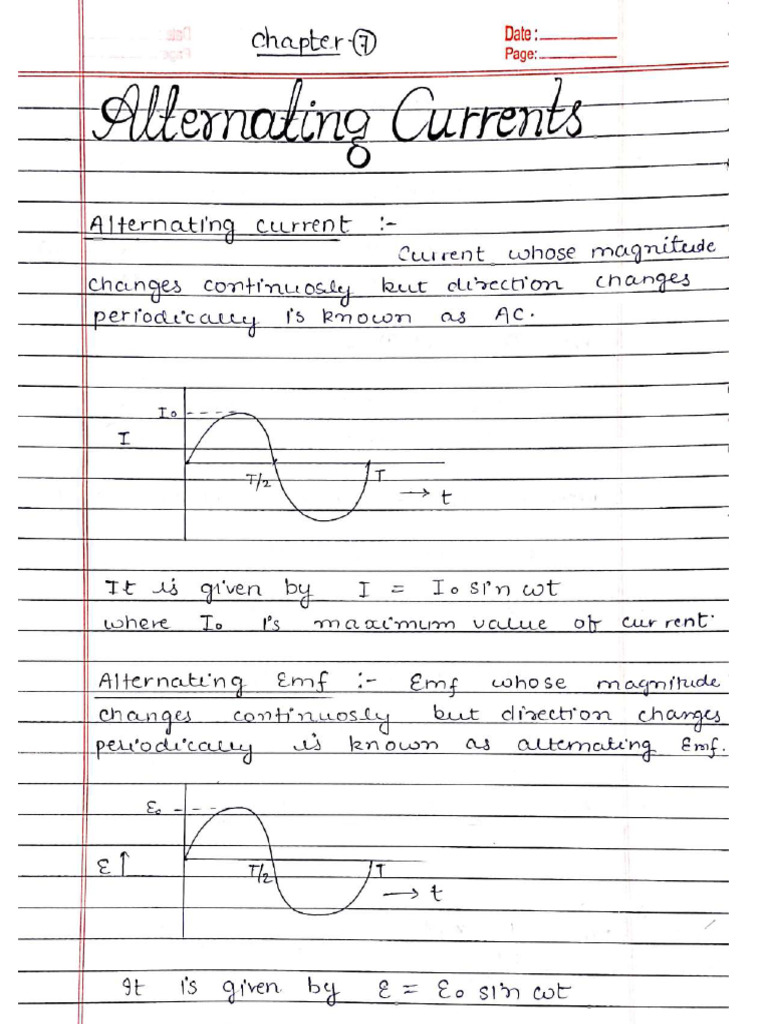 Chapter-⑦
Date:
Page:
Alternating Currents
Alternating current :-
Current whose magnitude
changes continuosly but direction changes
periodically is known as AC.
I₀
I
T/2
T
→ t
It is given by I = I₀ sin ωt
where I₀ is maximum value of current.
Alternating Emf :- Emf whose magnitude
changes continuosly but direction changes
periodically is known as alternating Emf.
ε₀
ε ↑
T/2
T
→ t
It is given by ε = ε₀ sin ωt